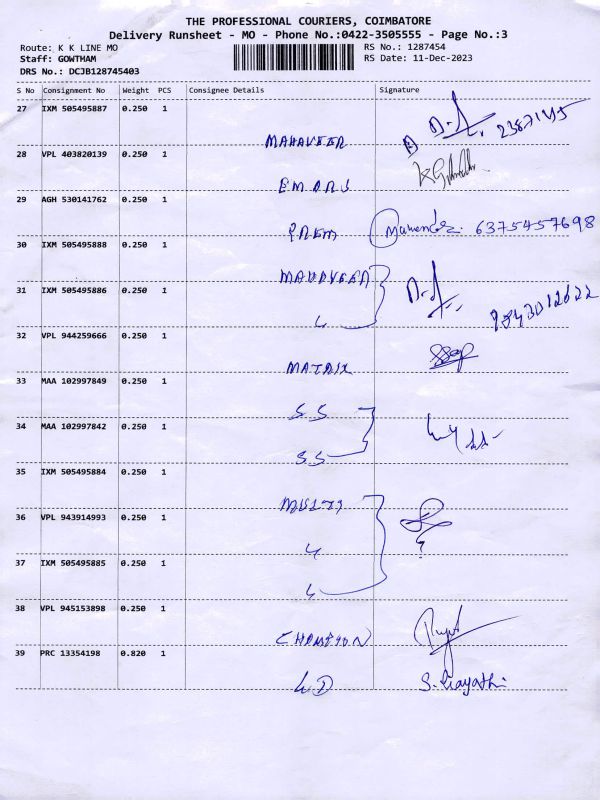 THE PROFESSIONAL COURIERS, COIMBATORE
Delivery Runsheet - MO - Phone No.:0422-3505555 - Page No.:3
Route: K K LINE MO
RS No.: 1287454
Staff: GOWTHAM
RS Date: 11-Dec-2023
DRS No.: DCJB128745403
S No Consignment No Weight PCS Consignee Details Signature
27 IXM 505495887 0.250 1
MAHAVEER
28 VPL 403820139 0.250 1
29 AGH 530141762 0.250 1
PREM Mahendar 6375457698
30 IXM 505495888 0.250 1
MAHAVEER
31 IXM 505495886 0.250 1
32 VPL 944259666 0.250 1
MATRIX
33 MAA 102997849 0.250 1
SS
34 MAA 102997842 0.250 1
SS
35 IXM 505495884 0.250 1
MULTY
36 VPL 943914993 0.250 1
37 IXM 505495885 0.250 1
38 VPL 945153898 0.250 1
CHAMPION
39 PRC 13354198 0.820 1
S. Gayathri